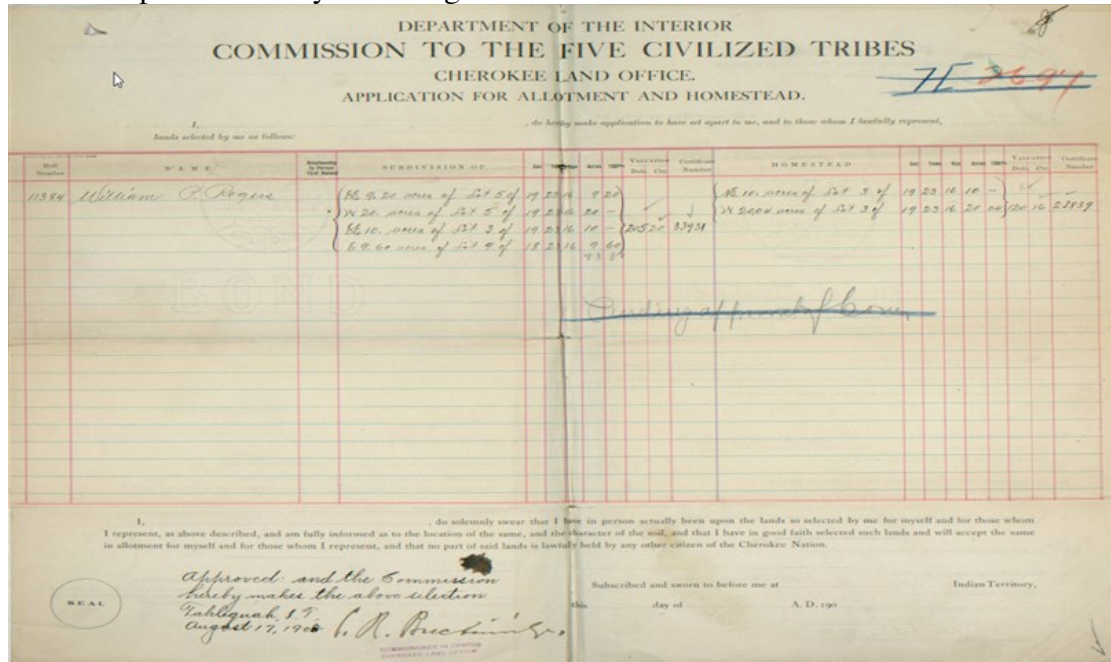 DEPARTMENT OF THE INTERIOR
COMMISSION TO THE FIVE CIVILIZED TRIBES
CHEROKEE LAND OFFICE.
APPLICATION FOR ALLOTMENT AND HOMESTEAD.
I, , do hereby make application to have set apart to me, and to those whom I lawfully represent,
lands selected by me as follows:
Roll Number NAME Relationship to Person First Named SUBDIVISION OF Sec. Town Rge. Acres 100ths VALUATION Dols. Cts. Certificate Number HOMESTEAD Sec. Town Rge. Acres 100ths VALUATION Dols. Cts. Certificate Number
11384 William P. Rogers 9.20 acres of Lot 5 of 19 23 16 9 20 10. acres of Lot 3 of 19 23 16 10 -
W 20. acres of Lot 5 of 19 23 16 20 - W 20.04 acres of Lot 3 of 19 23 16 20 04 120 16 23839
10. acres of Lot 3 of 19 23 16 10 - 205 20 33931
9.60 acres of Lot 9 of 18 23 16 9 60
BOND
Pending approval of Com.
I, , do solemnly swear that I have in person actually been upon the lands so selected by me for myself and for those whom
I represent, as above described, and am fully informed as to the location of the same, and the character of the soil, and that I have in good faith selected such lands and will accept the same
in allotment for myself and for those whom I represent, and that no part of said lands is lawfully held by any other citizen of the Cherokee Nation.
Approved: and the Commission
hereby makes the above selection
Tahlequah, I.T.
August 17, 190
SEAL
Subscribed and sworn to before me at Indian Territory,
this day of A. D. 190
COMMISSIONER IN CHARGE
CHEROKEE LAND OFFICE